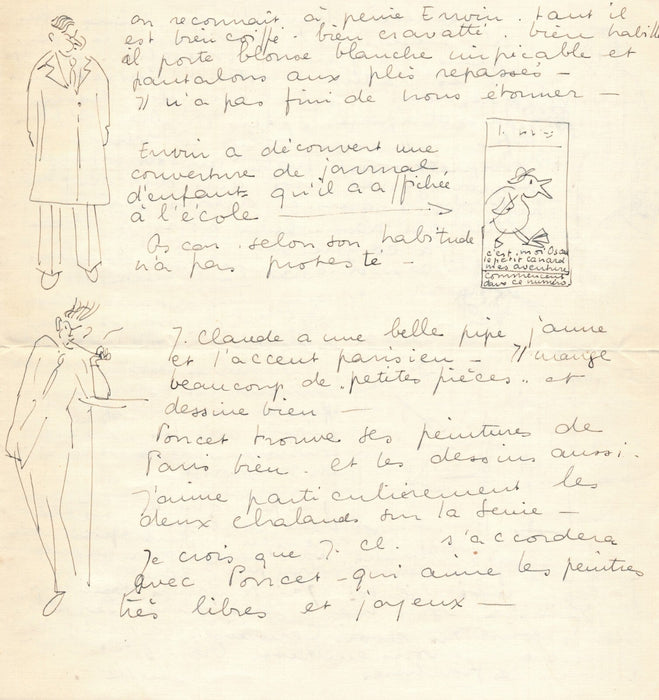 on reconnait à peine Erwin. tant il
est bien coiffé. bien cravatté. bien habillé
il porte blouse blanche impicable et
pantalons aux plis repassés —
Il n'a pas fini de nous étonner —
Erwin a découvert une
couverture de journal
d'enfants qu'il a affichée
à l'école
Oscar. selon son habitude
n'a pas protesté —
c'est moi Oscar
le petit canard
mes aventures
commencent
dans ce numéro
J. Claude a une belle pipe jaune
et l'accent parisien — Il mange
beaucoup de "petites pièces" et
dessine bien —
Poncet trouve ses peintures de
Paris bien. et les dessins aussi.
j'aime particulièrement les
deux chalands sur la Seine —
Je crois que J. Cl. s'accordera
avec Poncet - qui aime les peintres
très libres et joyeux —